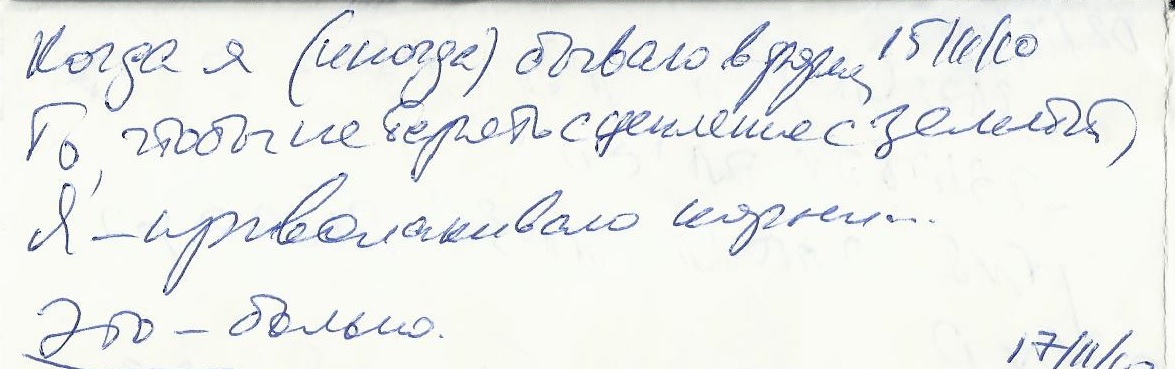 Когда я (иногда) бываю в 15/II/10
То, чтобы не терять сцепление с землёй,
Я – приволакиваю корни...
Это – больно.
17/II/10